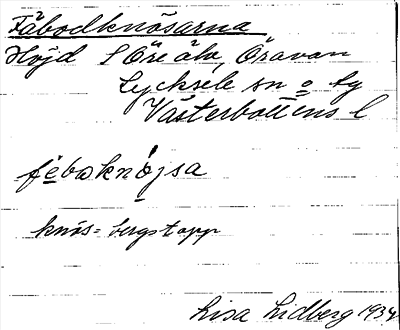 Fäbodknösarna
Höjd S Öre älv, Öravan
Lycksele sn o lg
Västerbottens l
fèbωknö́jsa
knös = bergstopp
Lisa Lidberg 1934